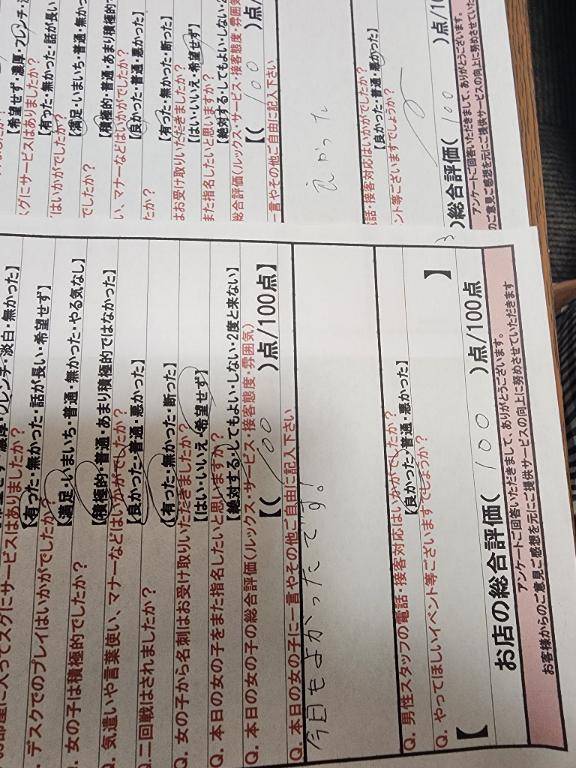 【希望せず・濃厚・フレンチ・淡
スグにサービスはありましたか？
【有った・無かった・話が長い
はいかがでしたか？
【満足・いまいち・普通・無かっ
でしたか？
【積極的・普通・あまり積極的
い、マナーなどはいかがでしたか？
【良かった・普通・悪かった】
たか？
【有った・無かった・断った】
はお受け取りいただきましたか？
【はい・いいえ・希望せず】
また指名したいと思いますか？
【絶対する・してもよい・しない・2
総合評価(ルックス・サービス・接客態度・雰囲気
【( 100 )点/
一言やその他ご自由に記入下さい
良かった
話・接客対応はいかがでしたか？
【良かった・普通・悪かった】
ント等ございますでしょうか？
の総合評価( 100 )点/10
アンケートご回答いただきまして、ありがとうございます。
のご意見ご感想を元にご提供サービスの向上に努めさせていた
濃厚・フレンチ・淡白・無かった】
お部屋に入ってスグにサービスはありましたか？
【有った・無かった・話が長い・希望せず】
デスクでのプレイはいかがでしたか？
【満足・いまいち・普通・無かった・やる気なし】
. 女の子は積極的でしたか？
【積極的・普通・あまり積極的ではなかった】
. 気遣いや言葉使い、マナーなどはいかがでしたか？
【良かった・普通・悪かった】
Q. 二回戦はされましたか？
【有った・無かった・断った】
Q. 女の子から名刺はお受け取りいただきましたか？
【はい・いいえ・希望せず】
Q. 本日の女の子をまた指名したいと思いますか？
【絶対する・してもよい・しない・2度と来ない】
Q. 本日の女の子の総合評価(ルックス・サービス・接客態度・雰囲気)
【( 100 )点/100点】
Q. 本日の女の子に一言やその他ご自由に記入下さい
今日もよかったです!
Q. 男性スタッフの電話・接客対応はいかがでしたか？
【良かった・普通・悪かった】
Q. やってほしいイベント等ございますでしょうか？
【 】
お店の総合評価( 100 )点/100点
アンケートご回答いただきまして、ありがとうございます。
お客様からのご意見ご感想を元にご提供サービスの向上に努めさせていただきます